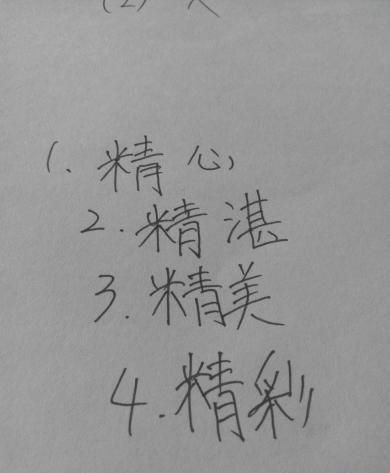 1. 精心
2. 精湛
3. 精美
4. 精彩